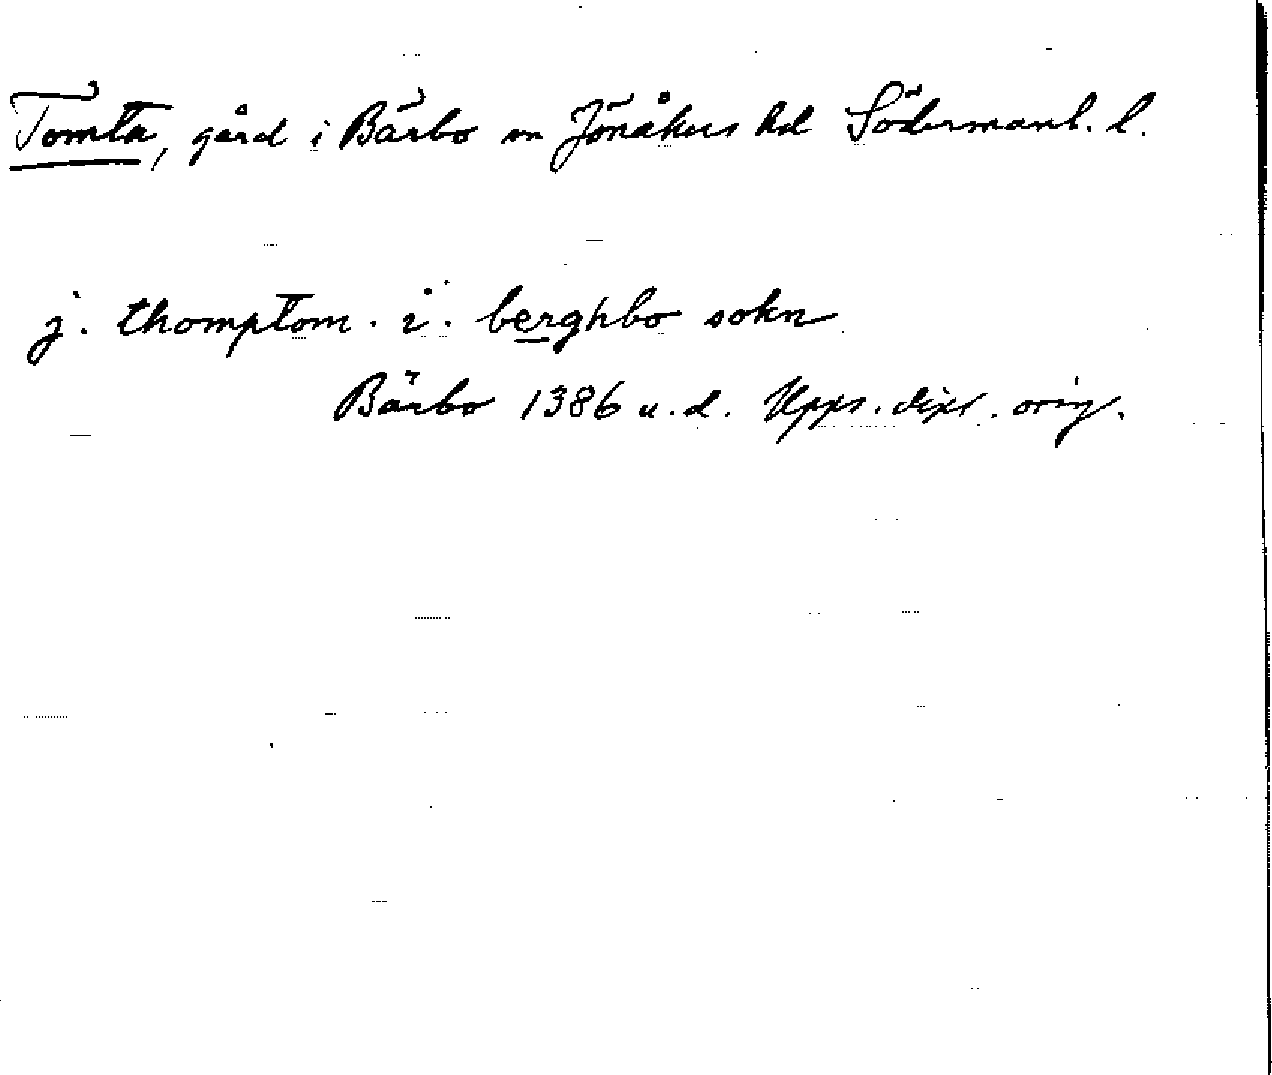 Tomta, gård i Bärbo sn Jönåkers hd Södermanl. l.
j. thomptom . i . berghbo sokn
Bärbo 1386 u. d. Upps. dipl. orig.